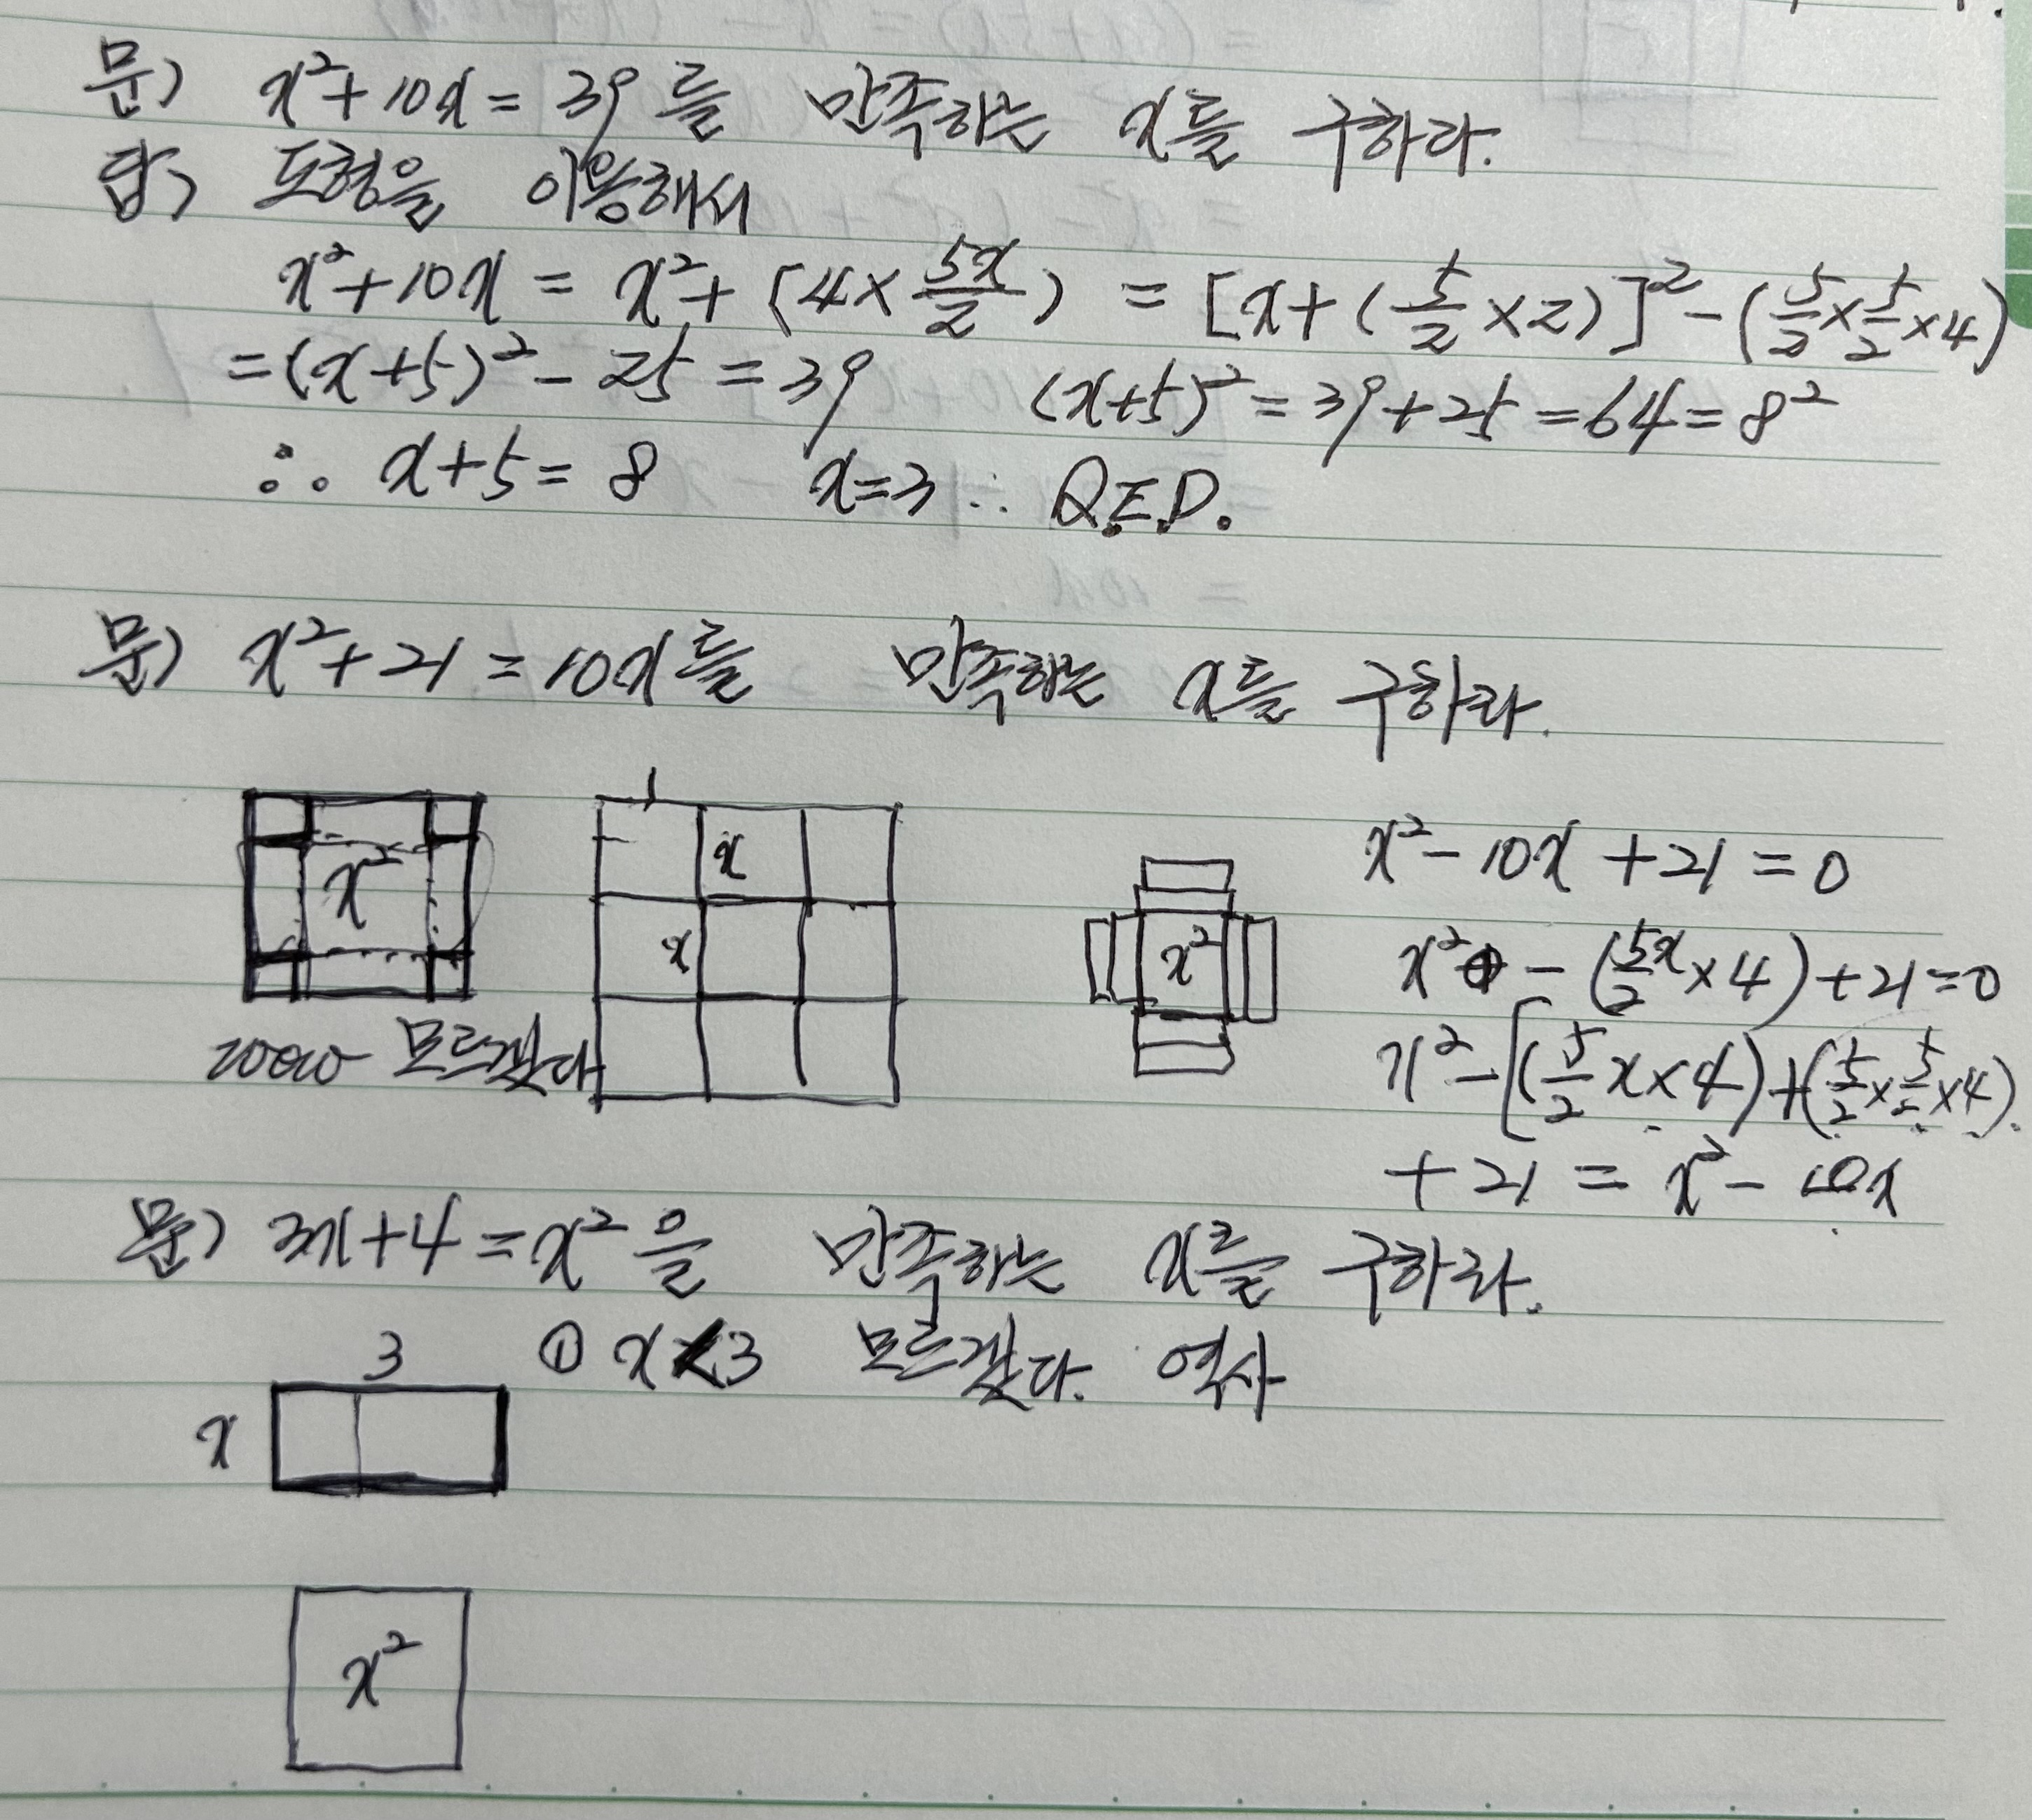 문) x²+10x = 39를 만족하는 x를 구하라.
답) 도형을 이용해서
x²+10x = x²+(4×5x/2) = [x+(5/2×2)]²-(5/2×5/2×4)
=(x+5)²-25=39 (x+5)²=39+25=64=8²
∴ x+5=8 x=3 ∴ Q.E.D.
문) x²+21=10x를 만족하는 x를 구하라.
x²
모르겠다
1
x
x
x²
x²-10x+21=0
x²-(5x/2×4)+21=0
x²-[(5/2x×4)+(5/2×5/2×4)
+21=x²-10x
문) 3x+4=x²을 만족하는 x를 구하라.
① x<3 모르겠다. 역사
3
x
x²